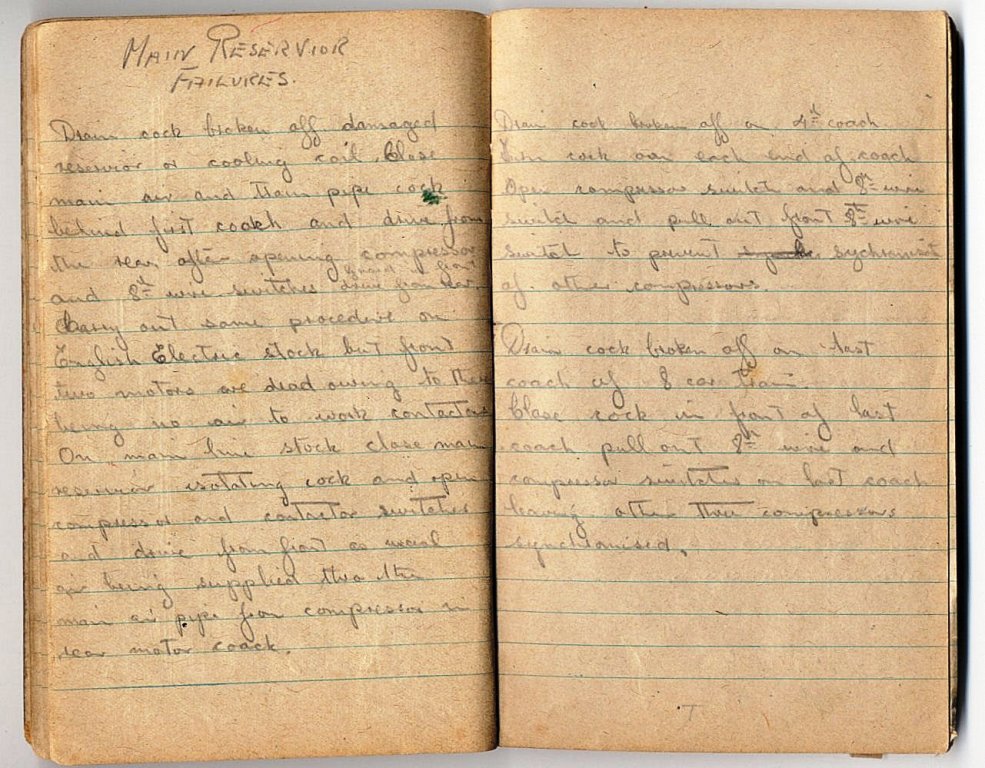 MAIN RESERVIOR
FAILURES.
Drain cock broken off damaged
reservior or cooling coil. Close
main air and train pipe cock
behind first coach and drive from
the rear after opening compressor
and 8th wire switches drive from rear.
Carry out same procedure on
English Electric stock but front
two motors are dead owing to there
being no air to work contactors
On main line stock close main
reservior isotating cock and open
compressor and contactor switches
and drive from front as usual
air being supplied thro the
main air pipe from compressor in
rear motor coach.
Drain cock broken off on 4th coach
Turn cock on each end of coach
Open compressor switch and 8th wire
switch and pull out front 8th wire
switch to prevent sychronisit
of other compressors.
Drain cock broken off on last
coach of 8 car train.
Close cock in front of last
coach pull out 8th wire and
compressor switches on last coach
leaving other three compressors
synchronised.